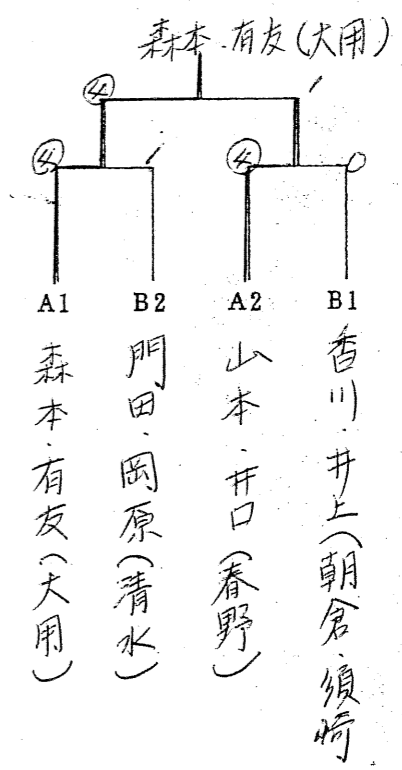 森本・有友(大用)
④ ノ
④ ノ ④ 0
A1 B2 A2 B1
森本・有友(大用)
門田・岡原(清水)
山本・井口(春野)
香川・井上(朝倉・須崎